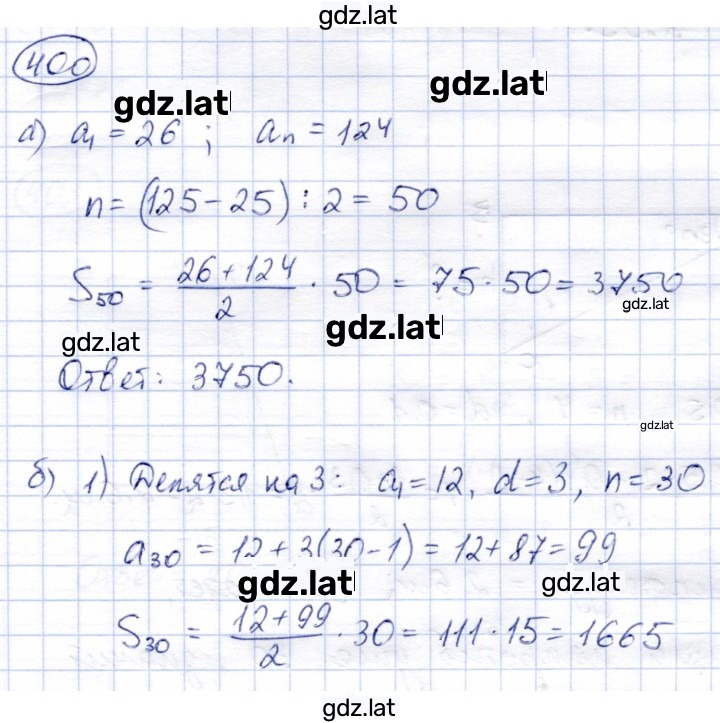 gdz.lat
400
gdz.lat
gdz.lat
а) a₁ = 26 ; aₙ = 124
n = (125 - 25) : 2 = 50
S₅₀ = (26 + 124)/2 · 50 = 75 · 50 = 3750
gdz.lat
gdz.lat
gdz.lat
Ответ: 3750.
gdz.lat
б) 1) Делятся на 3: a₁ = 12, d = 3, n = 30
a₃₀ = 12 + 3(30 - 1) = 12 + 87 = 99
gdz.lat
gdz.lat
S₃₀ = (12 + 99)/2 · 30 = 111 · 15 = 1665
gdz.lat